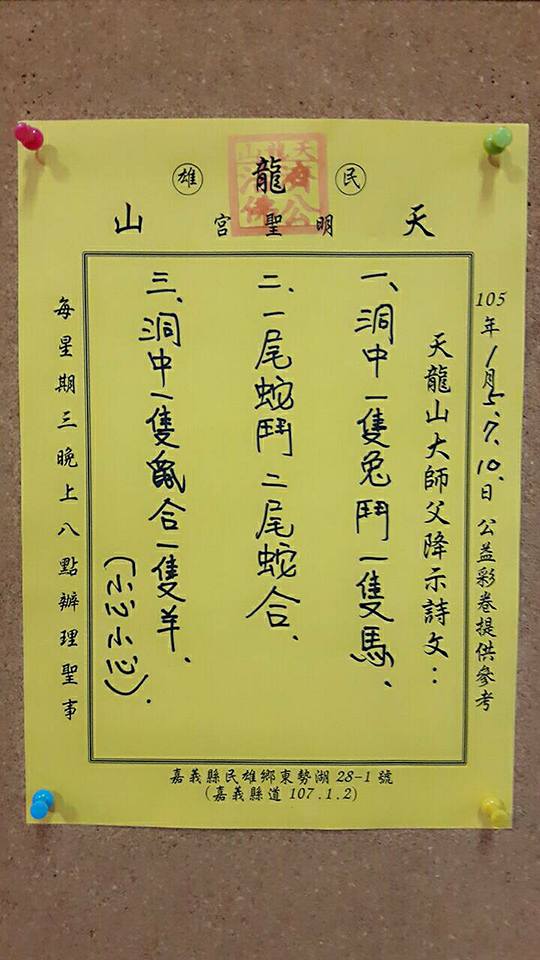 民龍雄
天明聖宮山
天龍山
濟公
活佛
105年1月5.7.10.日 公益彩卷提供參考
天龍山大師父降示詩文：
一、洞中一隻兔鬥一隻馬、
二、一尾蛇鬥二尾蛇合、
三、洞中一隻合一隻羊、
(小心小心).
每星期三晚上八點辦理聖事
嘉義縣民雄鄉東勢湖28-1號
(嘉義縣道107.1.2)